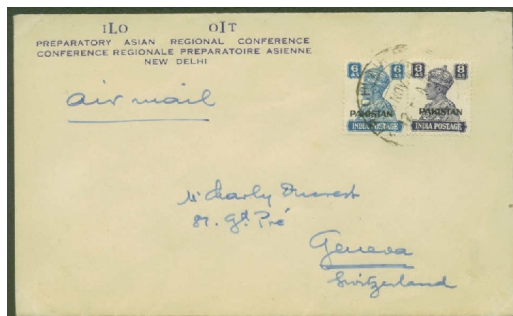 ILO OIT
PREPARATORY ASIAN REGIONAL CONFERENCE
CONFERENCE REGIONALE PREPARATOIRE ASIENNE
NEW DELHI
air mail
6 AS 6 AS
PAKISTAN
INDIA POSTAGE
8 AS 8 AS
PAKISTAN
INDIA POSTAGE
Mr Charly
87. Gd. Pré
Geneva
Switzerland